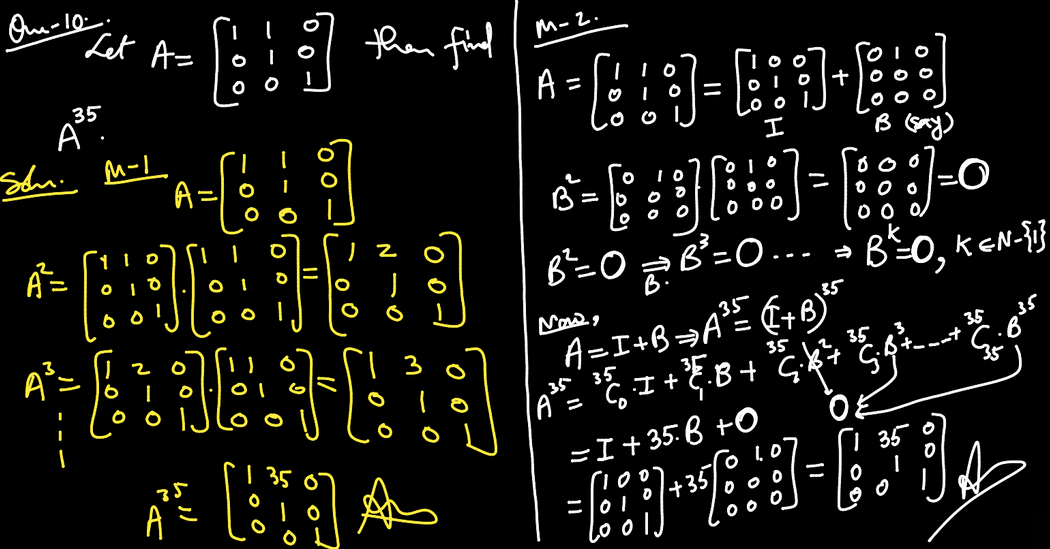 Qm-10.
Let A = [1 1 0; 0 1 0; 0 0 1] then find
A^35.
Soln. M-1
A = [1 1 0; 0 1 0; 0 0 1]
A^2 = [1 1 0; 0 1 0; 0 0 1] . [1 1 0; 0 1 0; 0 0 1] = [1 2 0; 0 1 0; 0 0 1]
A^3 = [1 2 0; 0 1 0; 0 0 1] . [1 1 0; 0 1 0; 0 0 1] = [1 3 0; 0 1 0; 0 0 1]
A^35 = [1 35 0; 0 1 0; 0 0 1]
M-2.
A = [1 1 0; 0 1 0; 0 0 1] = [1 0 0; 0 1 0; 0 0 1] + [0 1 0; 0 0 0; 0 0 0]
I B (say)
B^2 = [0 1 0; 0 0 0; 0 0 0] . [0 1 0; 0 0 0; 0 0 0] = [0 0 0; 0 0 0; 0 0 0] = O
B^2 = O ⇒ B^3 = O .... ⇒ B^K = O, K ∈ N-{1}
B.
Now,
A = I + B ⇒ A^35 = (I + B)^35
A^35 = ^35C_0 . I + ^35C_1 . B + ^35C_2 . B^2 + ^35C_3 . B^3 + ----- + ^35C_35 . B^35
O
= I + 35.B + O
= [1 0 0; 0 1 0; 0 0 1] + 35 [0 1 0; 0 0 0; 0 0 0] = [1 35 0; 0 1 0; 0 0 1]